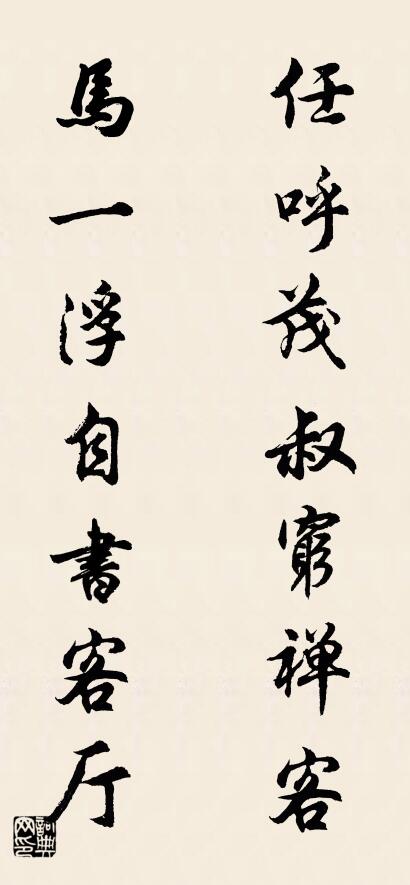 任呼茂叔窮禅客
馬一浮自書客厅